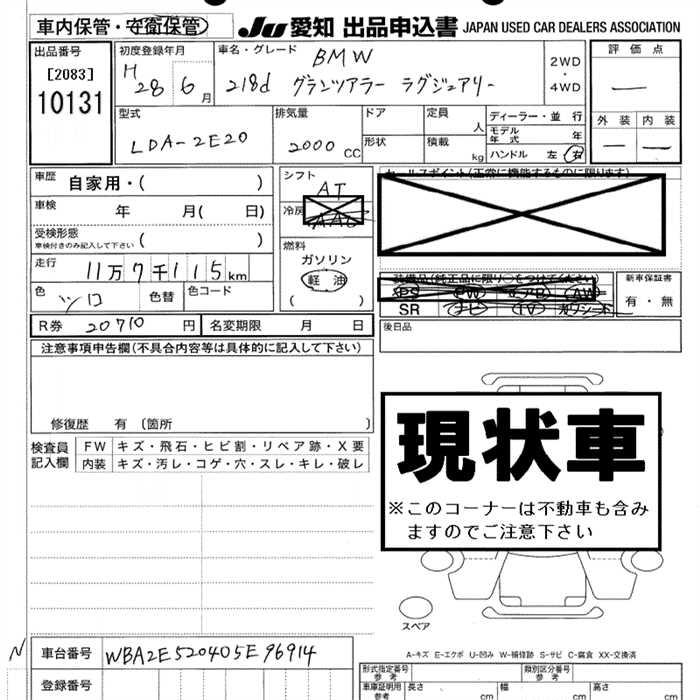 車内保管・安衛保管 JU 愛知 出品申込書 JAPAN USED CAR DEALERS ASSOCIATION
出品番号 初度登録年月 車名・グレード BMW 2WD・4WD 評価点
[2083] H 28 6月 218d グランツアラー ラグジュアリー —
10131
型式 排気量 ドア 定員 人 ディーラー・並行 外装 内装
LDA-2E20 2000 CC 形状 積載 kg モデル年式 年 — —
ハンドル 左 右
車歴 自家用・( ) シフト AT セールスポイント(正常に機能するものに限ります)
車検 年 月( 日) 冷房 AAC
受検形態 ( ) 燃料
車検付きのみ記入して下さい ガソリン
走行 11万7千115km 軽油 装備品(純正品に限り○をつけてください) 新車保証書
色 シロ 色替 色コード ( ) PS PW エアB AW 有・無
SR ナビ TV 革シート
R券 20710 円 名変期限 月 日 後日品
注意事項申告欄(不具合内容等は具体的に記入して下さい)
現状車
修復歴 有 〔箇所 〕
※このコーナーは不動車も含み
ますのでご注意下さい
検査員記入欄 FW キズ・飛石・ヒビ割・リペア跡・X要
内装 キズ・汚レ・コゲ・穴・スレ・キレ・破レ
スペア
A-キズ E-エクボ U-凹み W-補修跡 S-サビ C-腐食 XX-交換済
N 車台番号 WBA2E520405E96914 形式指定番号 参考 類別区分番号 参考
登録番号 車庫証明用 参考 長さ cm 幅 cm 高さ cm